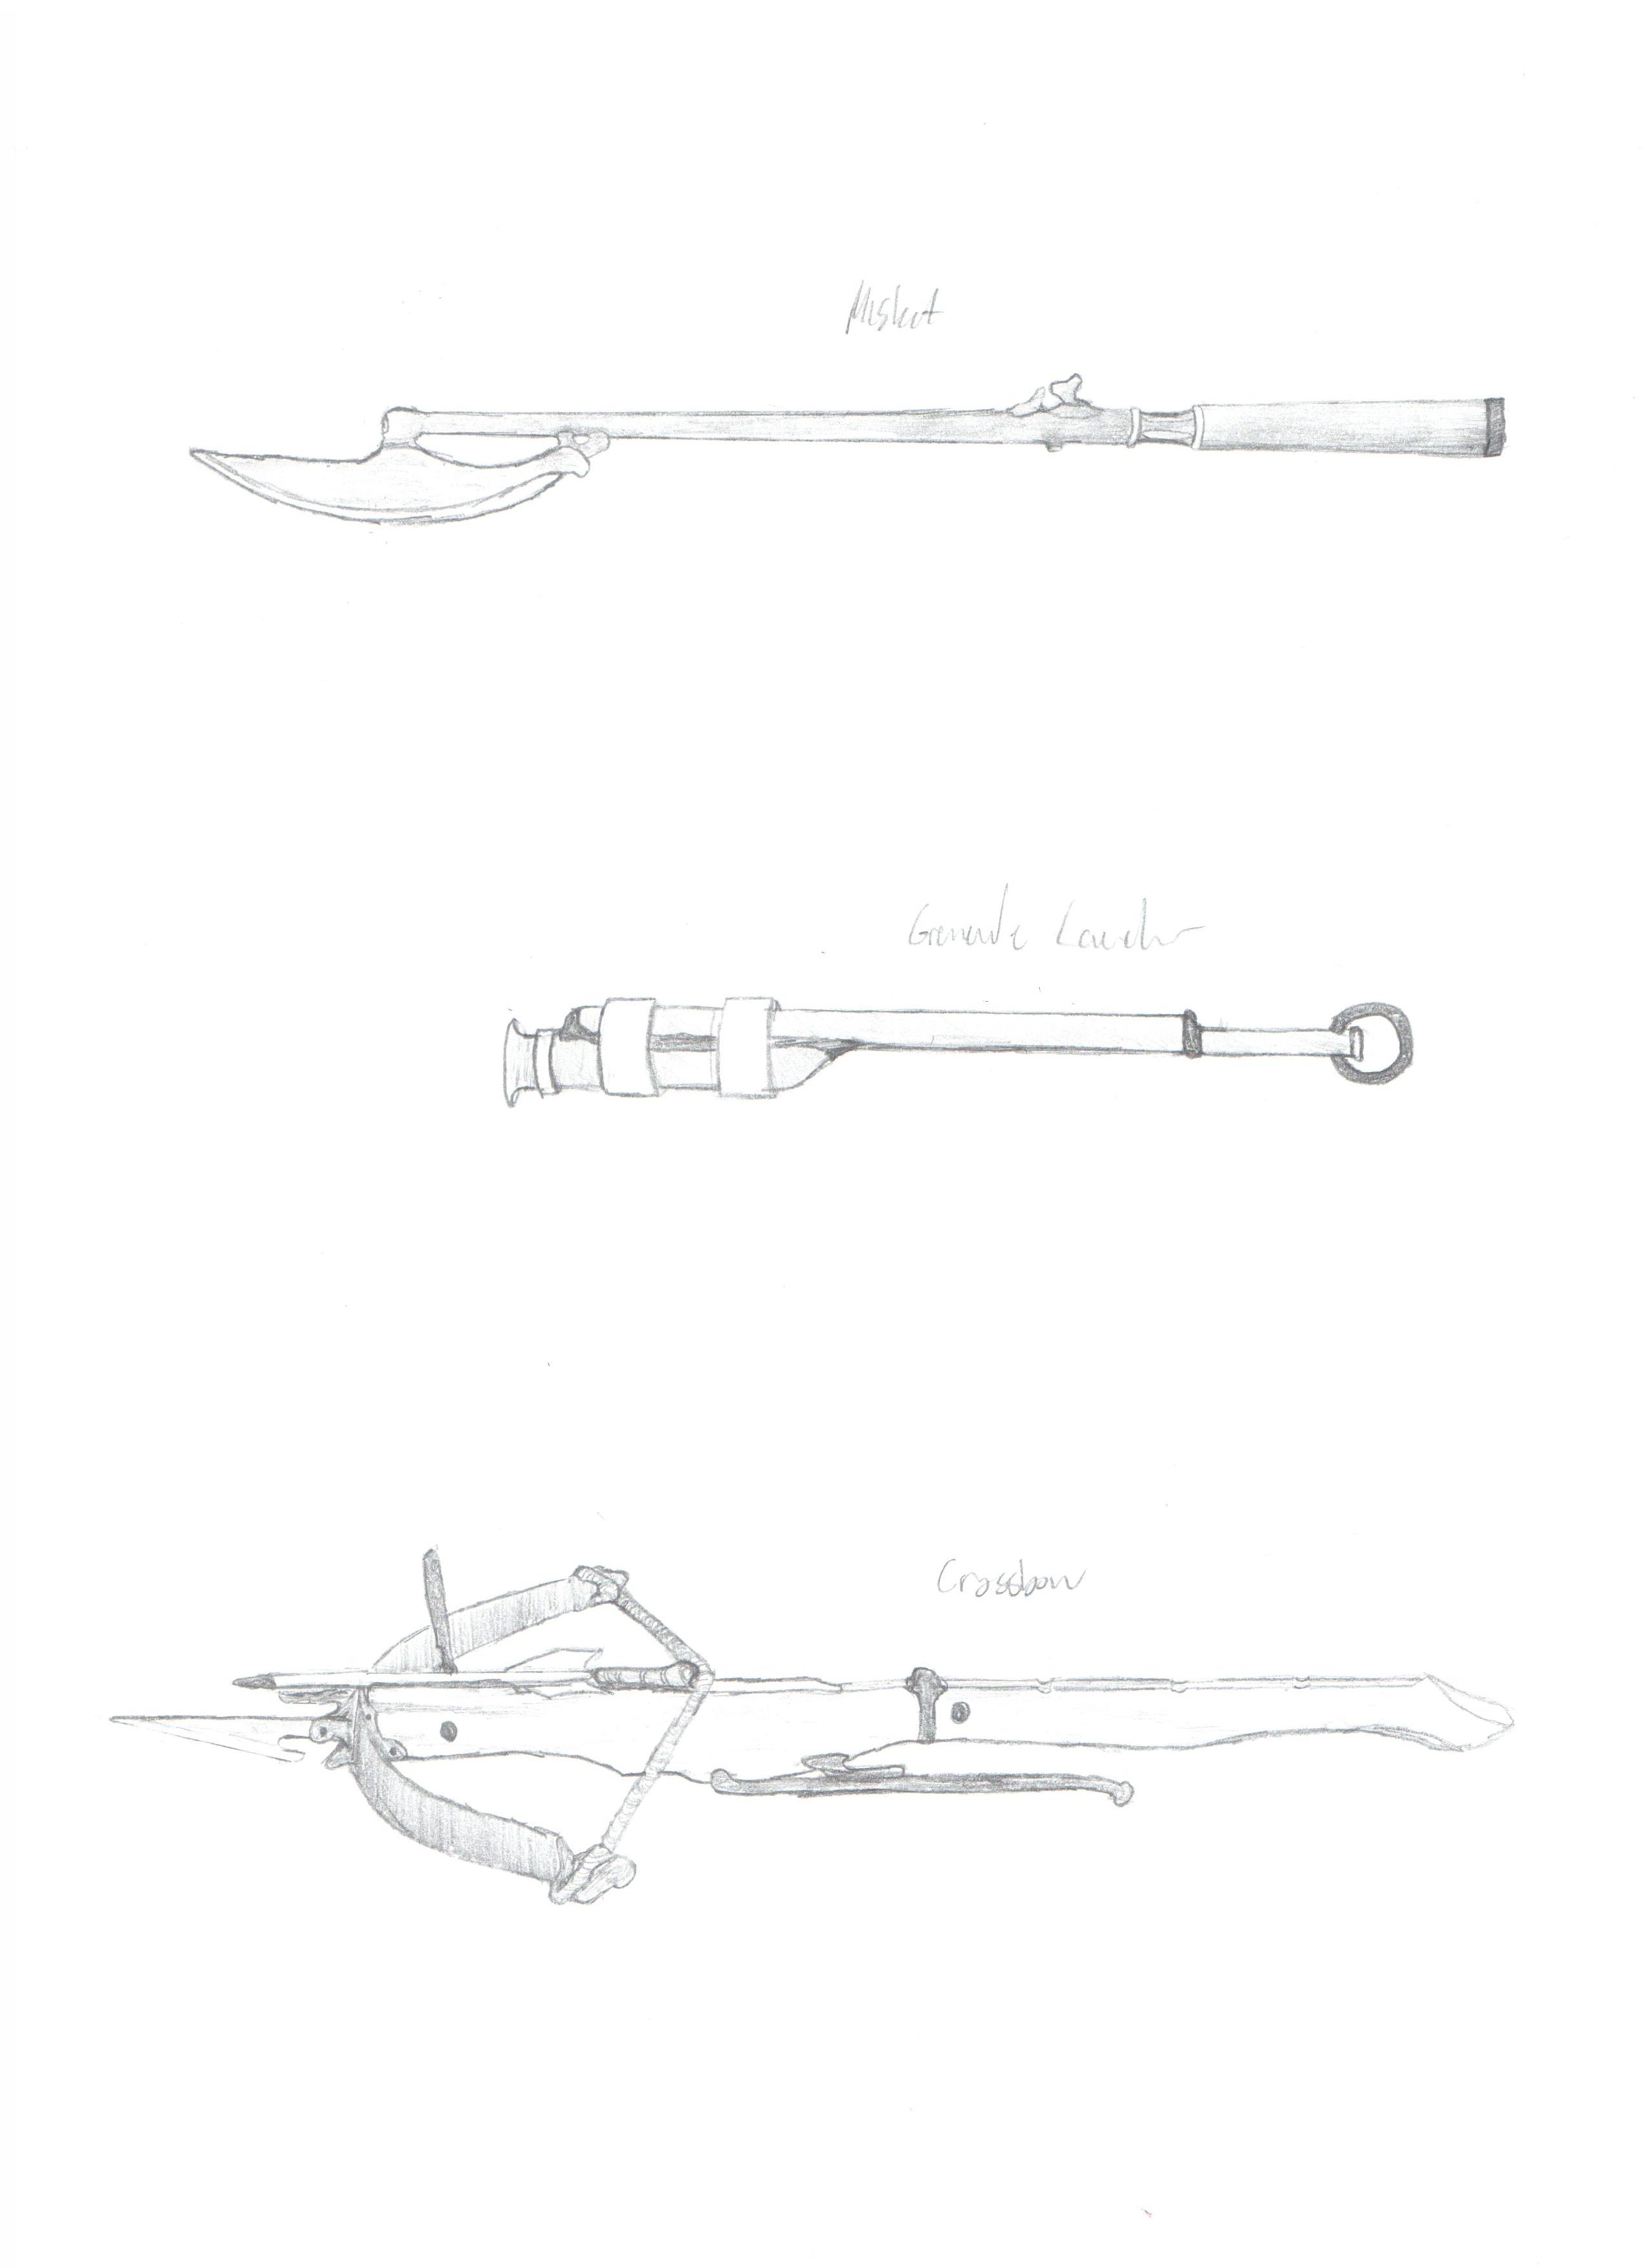 Musket
Grenade Launcher
Crossbow